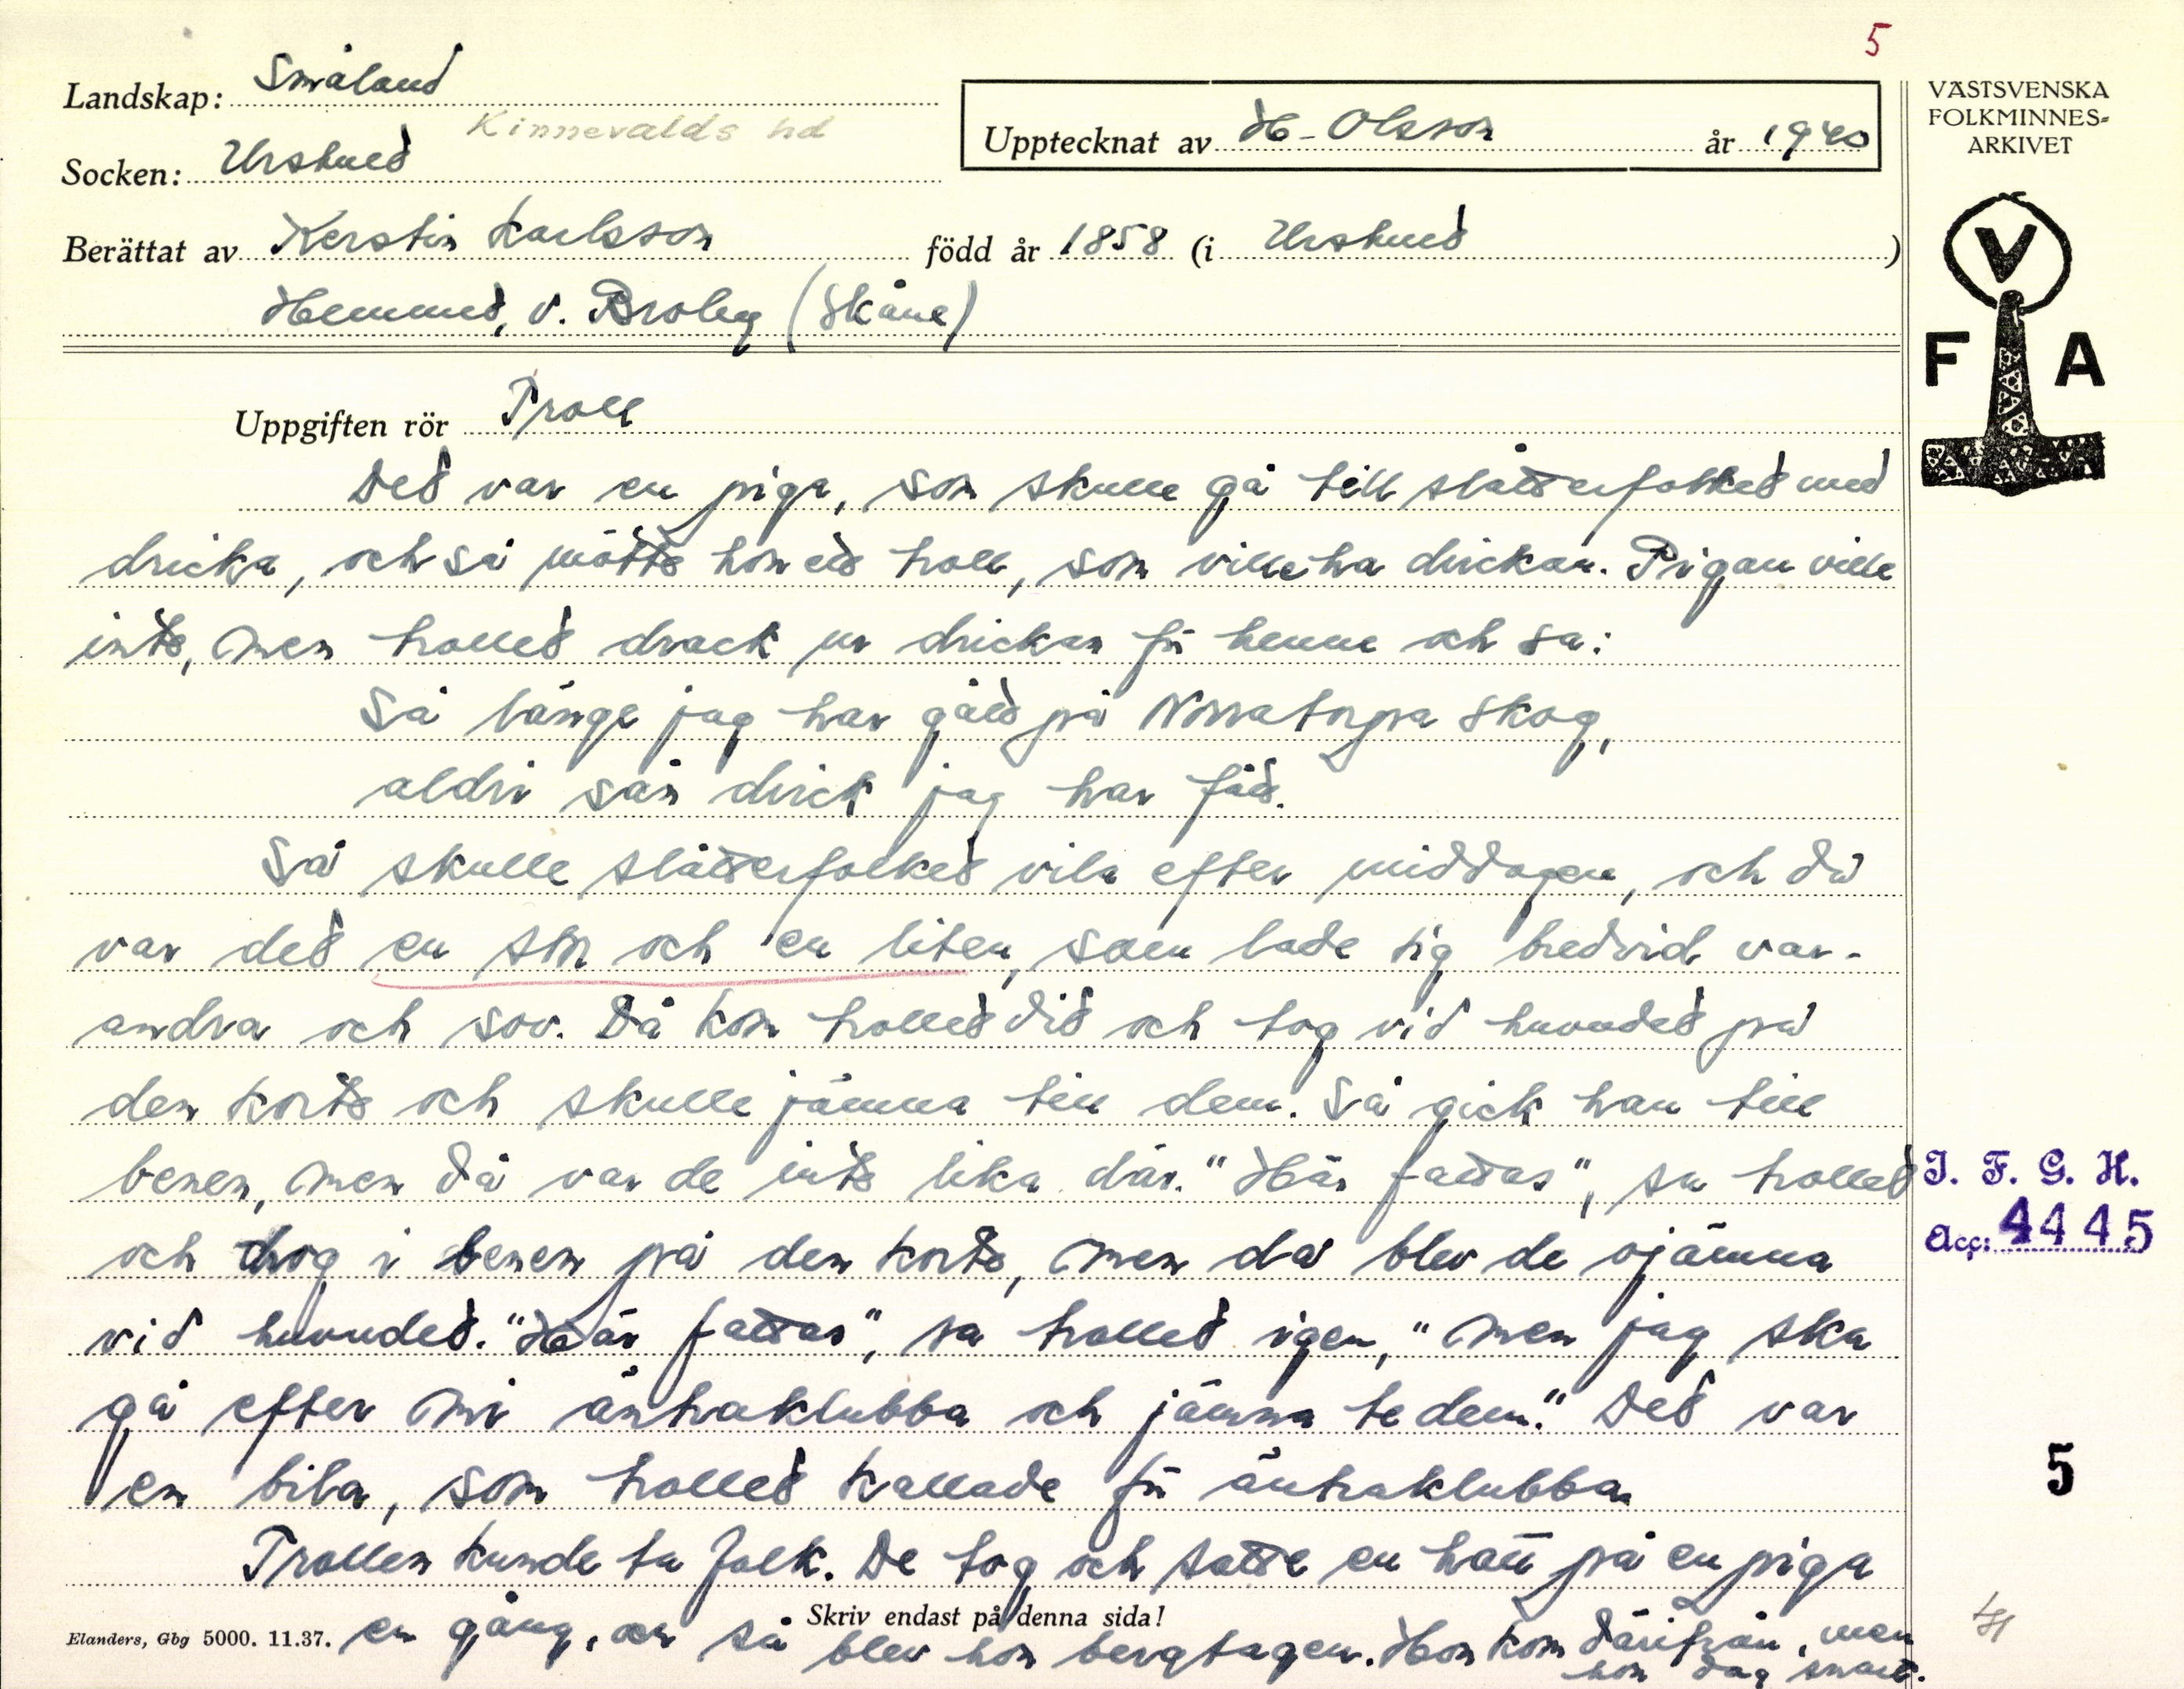 5
Landskap: Småland
Kinnevalds hd
Socken: Urshult
Upptecknat av H. Olsson år 1940
Berättat av Kerstin Karlsson född år 1858 (i Urshult)
Hemmet, v. Broby (Skåne)
VÄSTSVENSKA
FOLKMINNES-
ARKIVET
V
F A
Uppgiften rör Troll
Det var en piga, som skulle gå till slåtterfolket med
dricka, och så mötte hon ett troll, som ville ha drickan. Pigan ville
inte, men trollet drack ur drickan för henne och sa:
Så länge jag har gått på Norratorpa skog,
aldri sån drick jag har fått.
Så skulle slåtterfolket vila efter middagen, och då
var det en stor och en liten, som lade sig bredvid var-
andra och sov. Då kom trollet dit och tog vid huvudet på
den korte och skulle jämna till dem. Så gick han till
benen, men då var de inte lika där. "Här fattas", sa trollet
och drog i benen på den korte, men då blev de ojämna
vid huvudet. "Här fattas", sa trollet igen, "men jag ska
gå efter mi äntraklubba och jämna te dem." Det var
en bila, som trollet kallade för äntraklubban
Trollen kunde ta folk. De tog och satte en hatt på en piga
en gång, och så blev hon bergtagen. Hon kom därifrån, men
hon dog snart.
Skriv endast på denna sida!
Elanders, Gbg 5000. 11.37.
I. F. G. H.
Acc: 4445
5